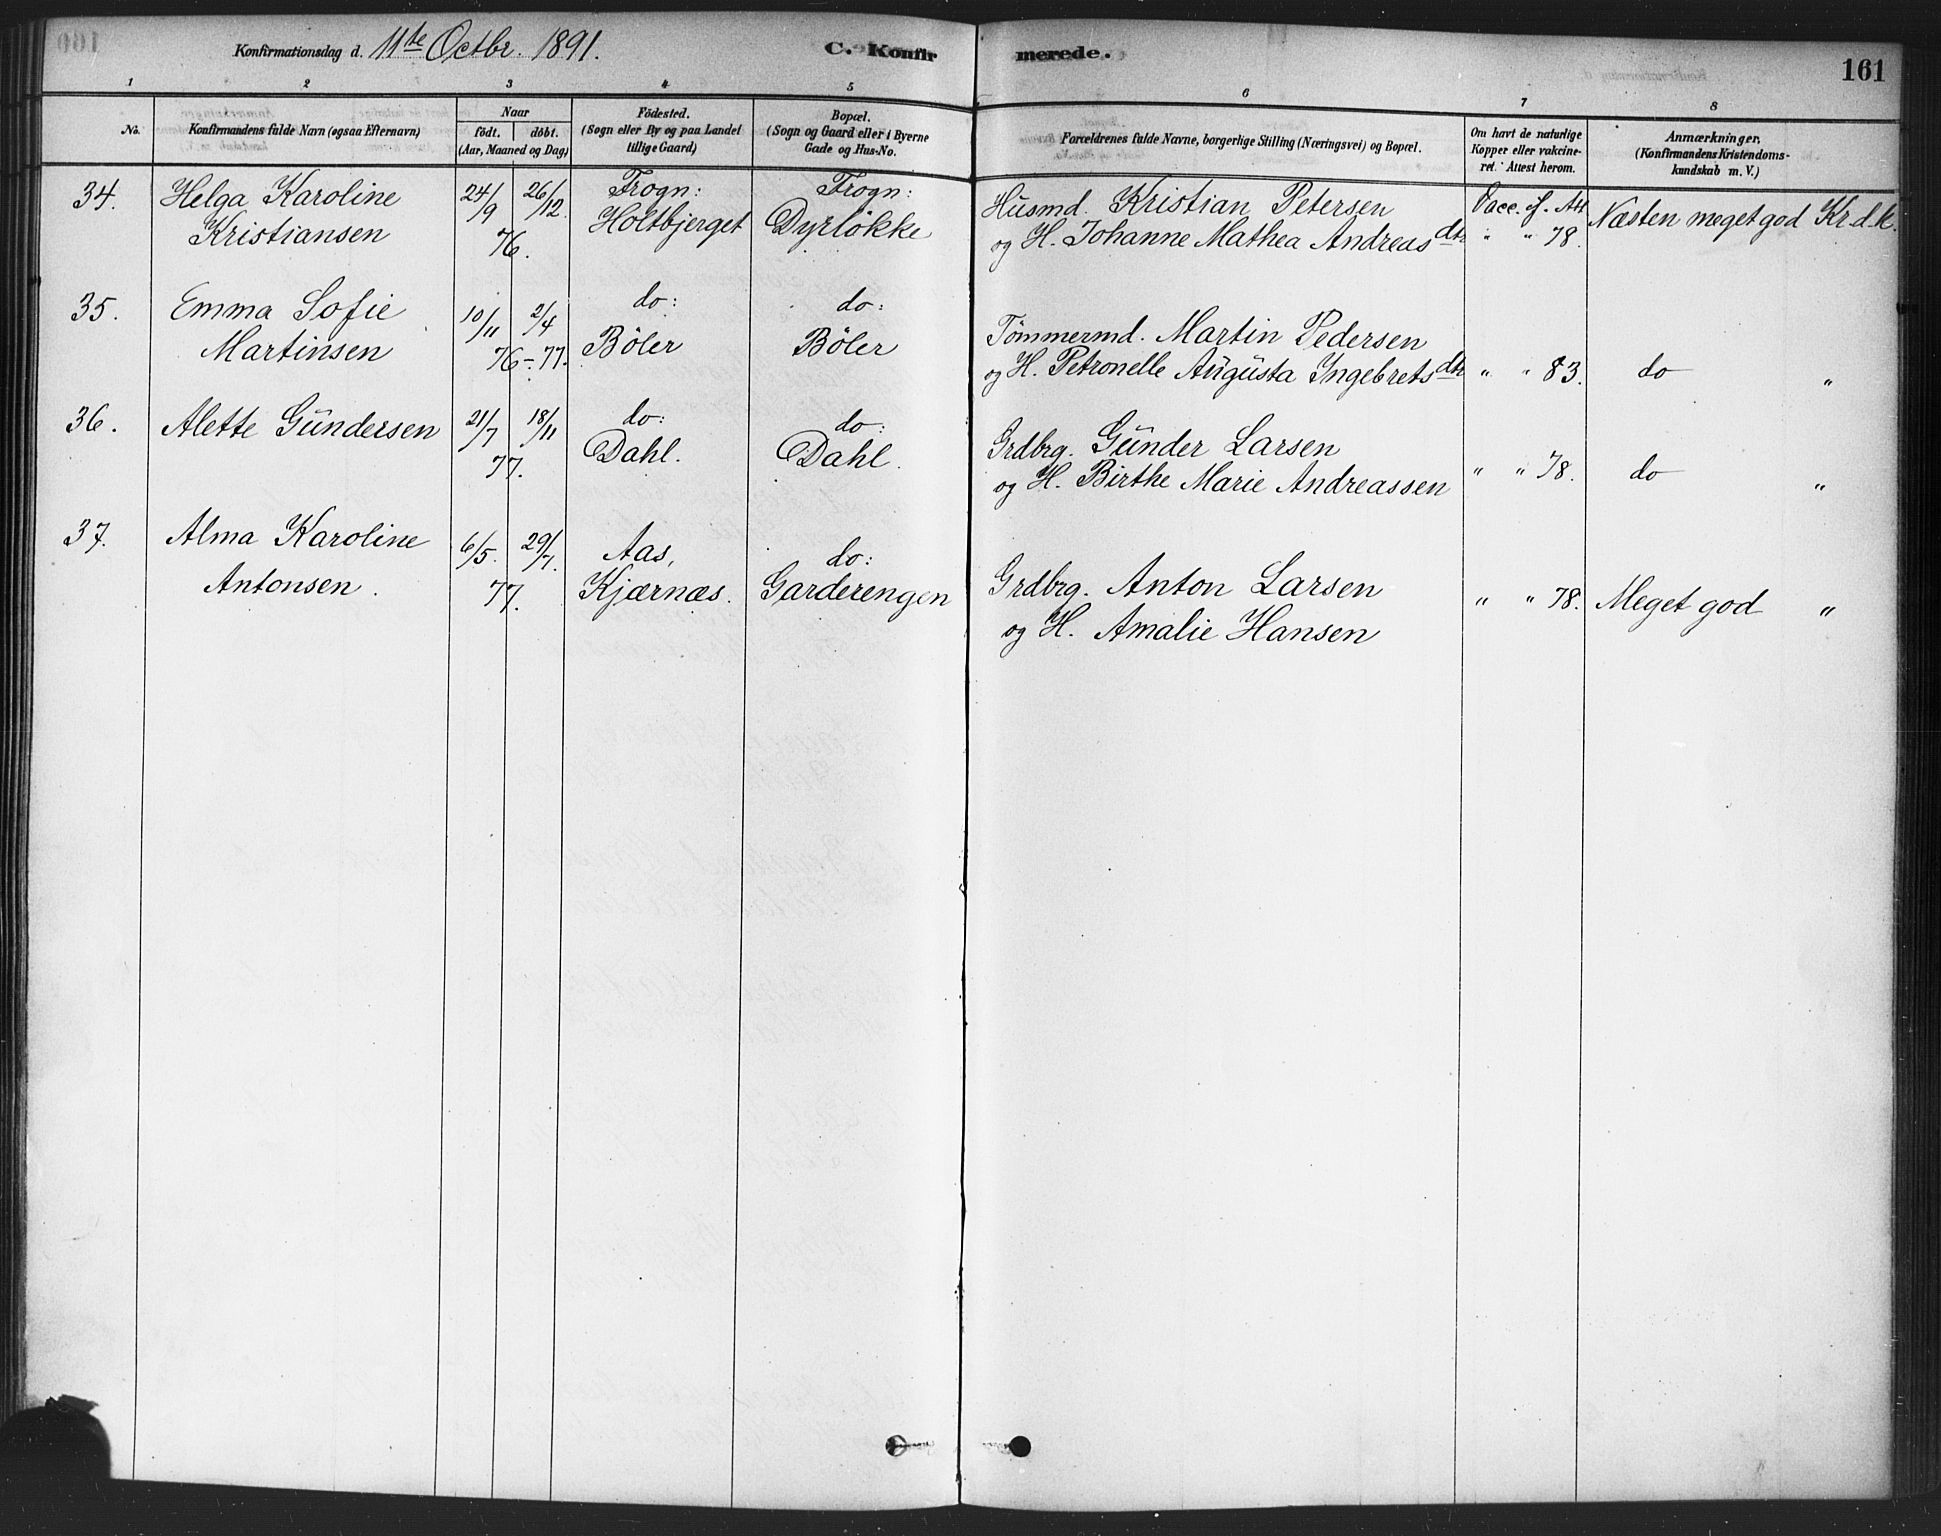 Konfirmationsdag d. 11te Octbr. 1891.
C. Konfir merede.
161
1 2 3 4 5 6 7 8
No.
Konfirmandens fulde Navn (ogsaa Efternavn)
Naar
födt. döbt.
(Aar, Maaned og Dag)
Födested.
(Sogn eller By og paa Landet
tillige Gaard)
Bopæl.
(Sogn og Gaard eller i Byerne
Gade og Hus-No.
Forældrenes fulde Navne, borgerlige Stilling (Næringsvei) og Bopæl.
Om havt de naturlige
Kopper eller vakcine-
ret. Attest herom.
Anmærkninger,
(Konfirmandens Kristendoms-
kundskab m. V.)
34. Helga Karoline 24/9 26/12 Frogn: Frogn: Husmd. Kristian Petersen Vacc. f. Att.
Kristiansen 76. Holtbjerget Dyrløkke og H. Johanne Mathea Andreasdtr " " 78. Næsten meget god Kr.d.k.
35. Emma Sofie 10/11 2/4 do: do: Tömmermd. Martin Pedersen
Martinsen 76-77. Böler Böler og H. Petronelle Augusta Ingebretsdtr " " 83. do "
36. Alette Gundersen 21/7 18/11 do: do: Grdbrg. Gunder Larsen
77. Dahl. Dahl. og H. Birthe Marie Andreassen " " 78. do "
37. Alma Karoline 6/5. 29/7. Aas, do: Grdbrg. Anton Larsen
Antonsen. 77. Kjærnæs. Garderengen og H. Amalie Hansen " " 78. Meget god "